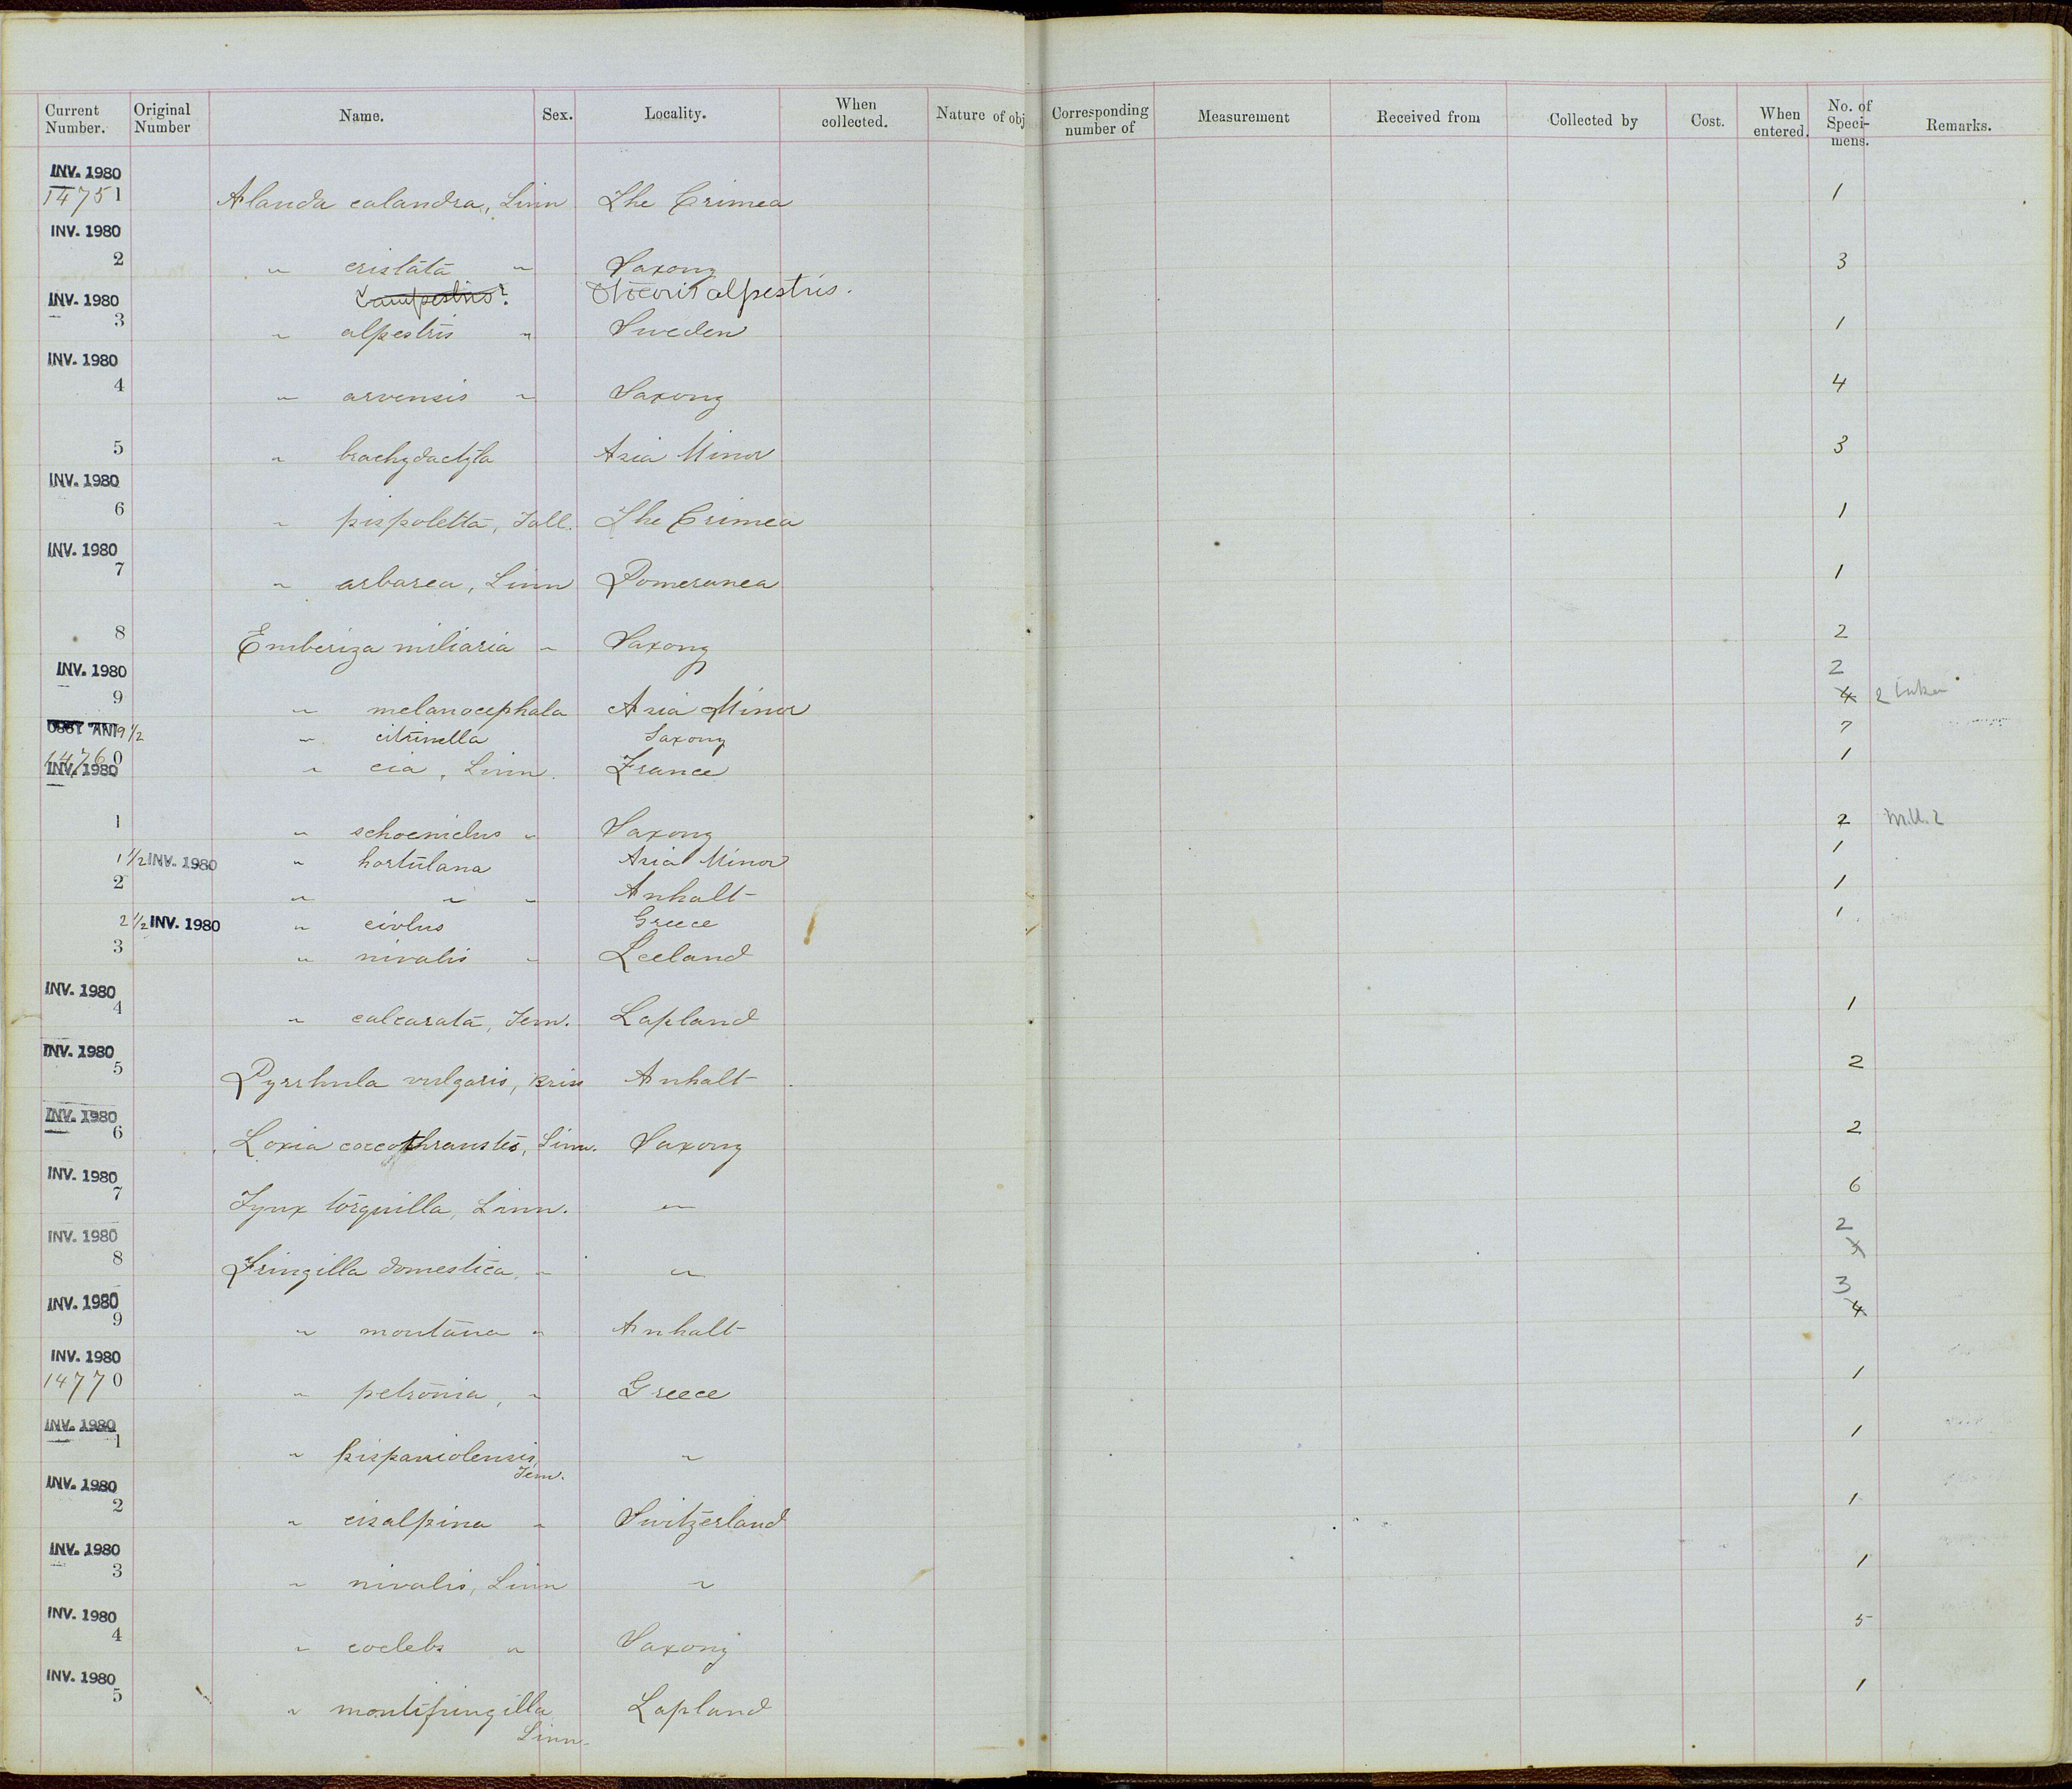 Current Number. Original Number Name. Sex. Locality. When collected. Nature of obj Corresponding number of Measurement Received from Collected by Cost. When entered. No. of Speci-mens. Remarks.
INV. 1980
14751 Alauda calandra, Linn The Crimea 1
INV. 1980
2 " cristata " Saxony 3
campestris? Otocoris alpestris.
INV. 1980
3 " alpestris " Sweden 1
INV. 1980
4 " arvensis " Saxony 4
5 " brachydactyla Asia Minor 3
INV. 1980
6 " pispoletta, Pall. The Crimea 1
INV. 1980
7 " arbarea, Linn Pomeranea 1
8 Emberiza miliaria " Saxony 2
INV. 1980 2
9 " melanocephala Asia Minor 4 2 taken
INV. 1980 9 1/2 " citrinella Saxony 7
14760 " cia, Linn. France 1
INV. 1980
1 " schoeniclus " Saxony 2 M.U. 2
1 1/2 INV. 1980 " hortulana Asia Minor 1
2 " " " Anhalt 1
2 1/2 INV. 1980 " cirlus Greece 1
3 " nivalis " Iceland
INV. 1980
4 " calcarata, Tem. Lapland 1
INV. 1980
5 Pyrrhula vulgaris, Briss Anhalt 2
INV. 1980
6 Loxia coccothraustes, Linn. Saxony 2
INV. 1980
7 Iynx torquilla, Linn. " 6
INV. 1980 2
8 Fringilla domestica, " "
INV. 1980 3
9 " montana " Anhalt 4
INV. 1980
14770 " petronia, " Greece 1
INV. 1980
1 " hispaniolensis, "  1
Tem.
INV. 1980
2 " cisalpina " Switzerland 1
INV. 1980
3 " nivalis, Linn " 1
INV. 1980
4 " coelebs " Saxony 5
INV. 1980
5 " montifringilla Lapland 1
Linn.